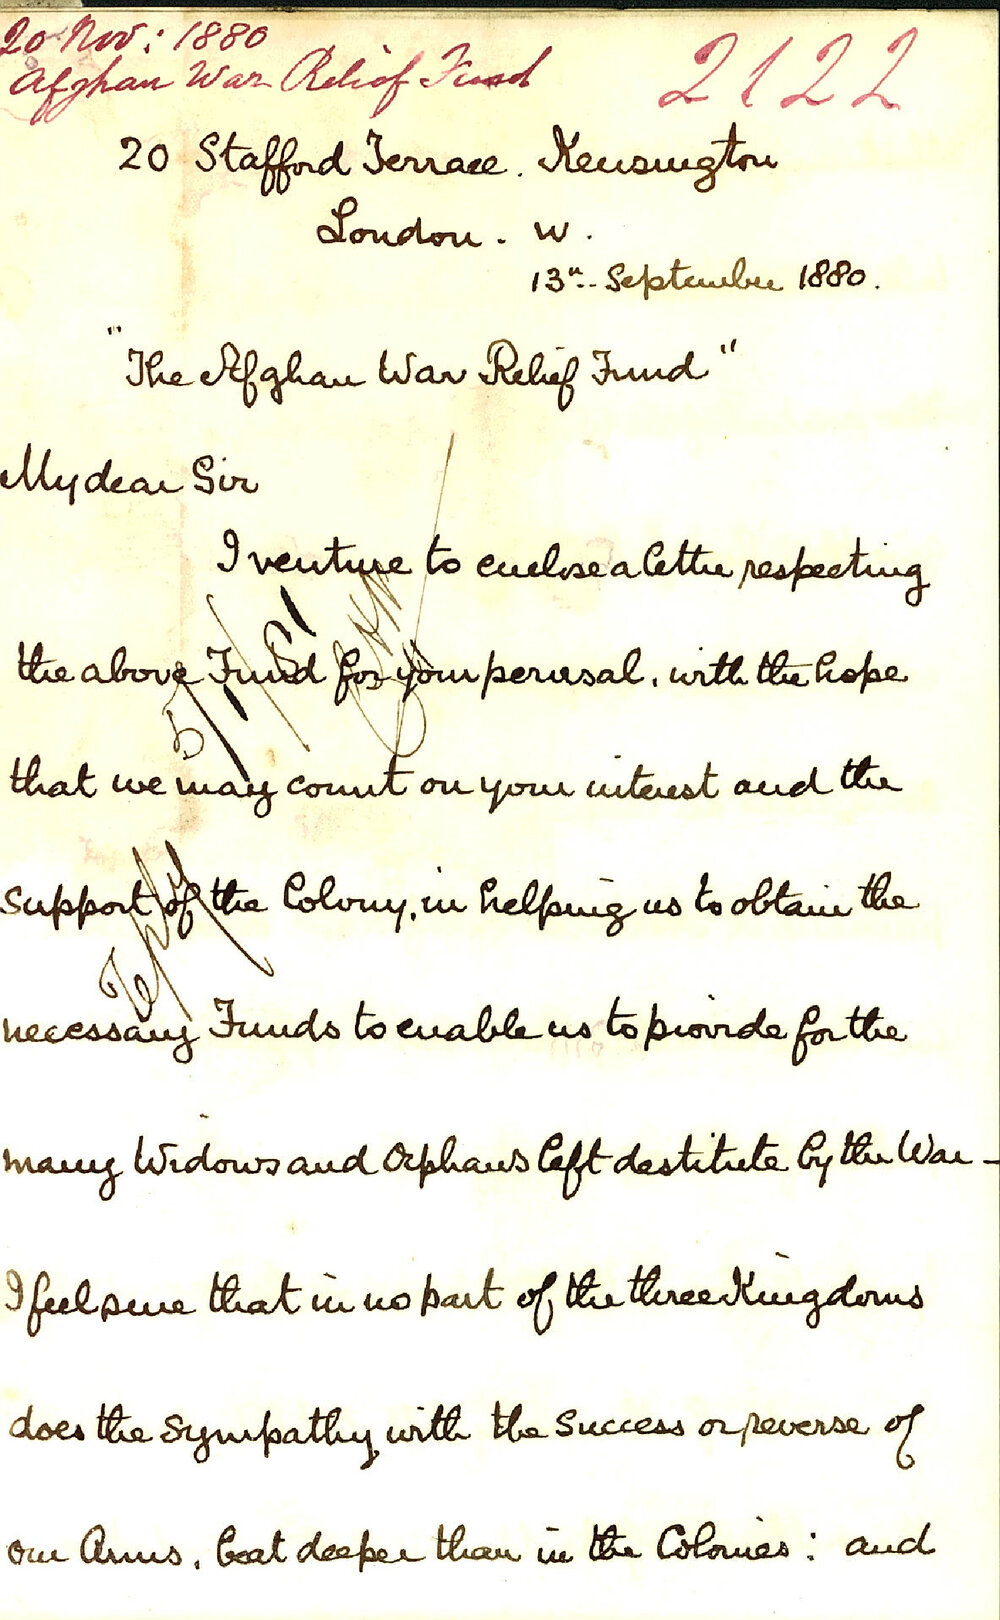 20 Nov: 1880
Afghan War Relief Fund
2122
20 Stafford Terrace. Kensington
London. W.
13th September 1880.
"The Afghan War Relief Fund"
My dear Sir
I venture to enclose a letter respecting
the above Fund for your perusal, with the hope
that we may count on your interest and the
support of the Colony, in helping us to obtain the
necessary Funds to enable us to provide for the
many Widows and Orphans left destitute by the War -
I feel sure that in no part of the three Kingdoms
does the sympathy with the success or reverse of
our Arms, beat deeper than in the Colonies: and
5/1/81